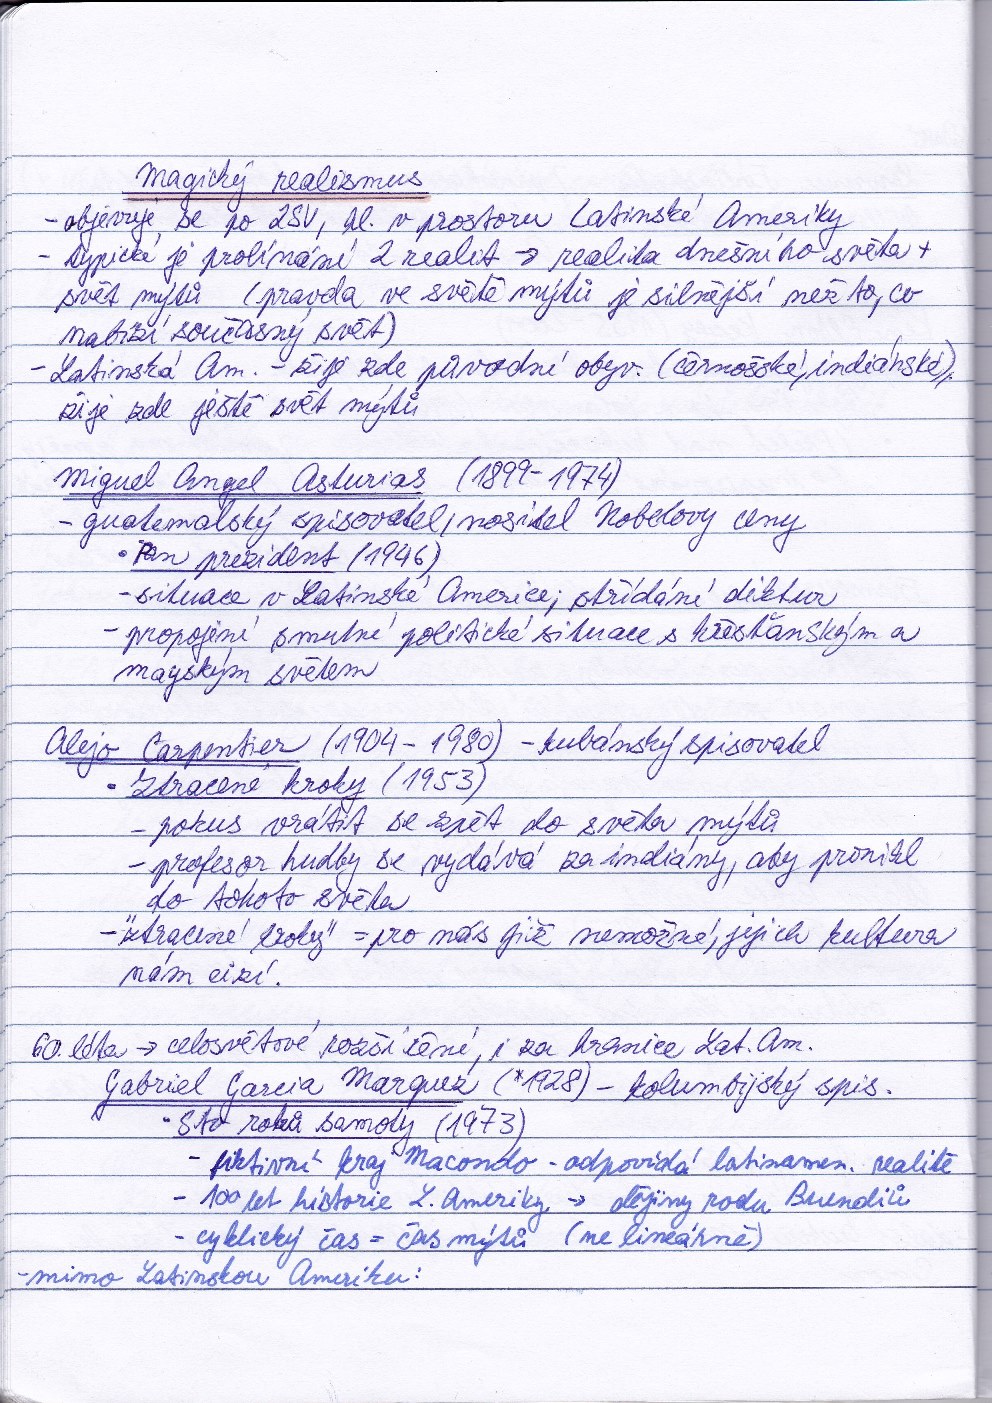 Magický realismus
- objevuje se po 2SV, hl. v prostoru Latinské Ameriky
- typické je prolínání 2 realit → realita dnešního světa +
svět mýtů (pravda ve světě mýtů je silnější než to, co
nabízí současný svět)
- Latinská Am. - žije zde původní obyv. (černošské, indiánské),
žije zde ještě svět mýtů
Miguel Angel Asturias (1899-1974)
- guatemalský spisovatel, nositel Nobelovy ceny
• Pan prezident (1946)
- situace v Latinské Americe; střídání diktur
- propojení smutné politické situace s křesťanským a
mayským světem
Alejo Carpentier (1904 - 1980) - kubánský spisovatel
• Ztracené kroky (1953)
- pokus vrátit se zpět do světa mýtů
- profesor hudby se vydává za indiány, aby pronikl
do tohoto světa
- "ztracené kroky" = pro nás již nemožné, jejich kultura
nám cizí.
60. léta → celosvětové rozšíření, i za hranice Lat. Am.
Gabriel Garcia Marquez (*1928) - kolumbijský spis.
• Sto roků samoty (1973)
- fiktivní kraj Macondo - odpovídá latinamer. realitě
- 100 let historie L. Ameriky → dějiny rodu Buendiů
- cyklický čas = čas mýtů (ne lineárně)
- mimo Latinskou Ameriku: